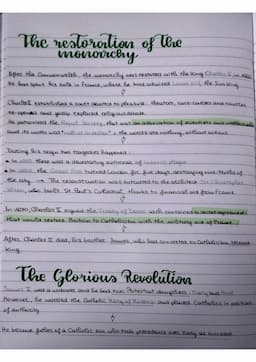 The restoration of the
monarchy
After the Commonwealth, the monarchy was restored with the king Charles II in 1660
He had spent his exile in France, where he had admired Louis XIV, the Sun King
Charles established a court devoted to pleasure: theatres, and
reopened and gossip replaced religious debate.
He patronised the Royal Society, that was an association of scientists and intellectuals
and its motto was "Nullius in verba" = the words are nothing, without actions
During his reign two tragedies happened:
• in 1665 there was a devastating outbreak of bubonic plague
• in 1666 the Great Fire burned London for five days, destroying most of
the city → The reconstruction was entrusted to the architect Sir Christopher
Wren, who built St Paul's Cathedral, thanks to financial aid from France
In 1670 Charles II signed the Treaty of Dover with a secret agreement
that would restore Britain to Catholicism with the military aid of France
After Charles II died, his brother James, who had converted to Catholicism became
king
The Glorious Revolution
James II was a widower and he had two Protestant daughters: Mary and Anne
However, he married the Catholic Mary of Modena and placed Catholics in positions
of authority
He became father of a Catholic son who took precedence over Mary as successor